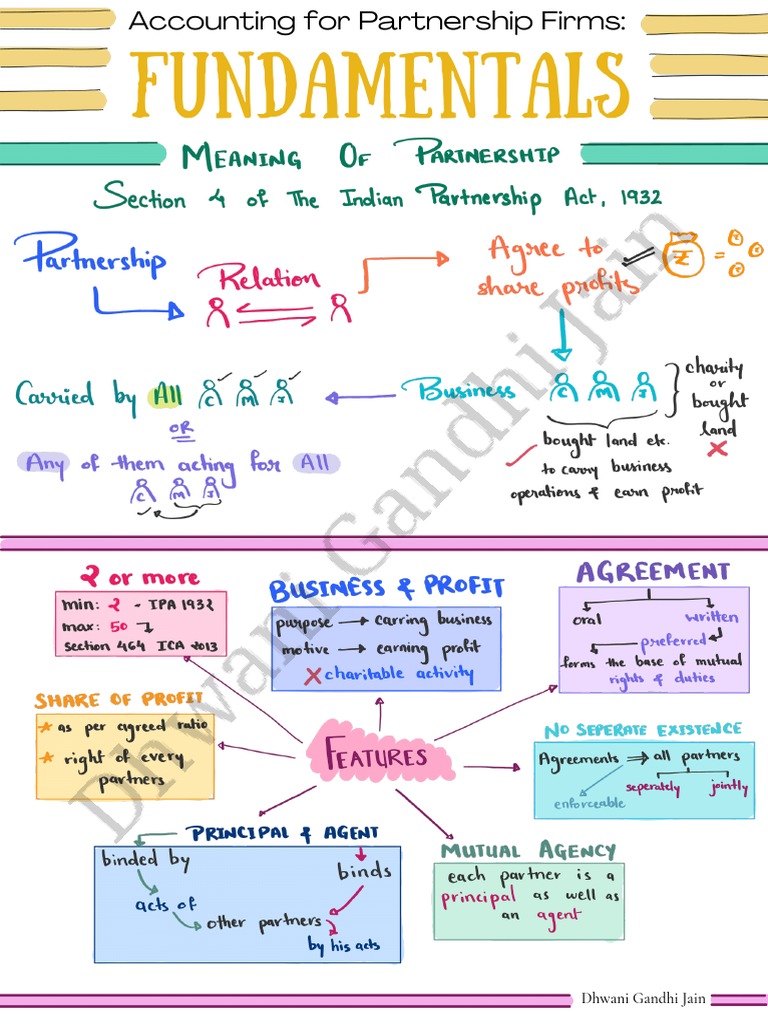 Accounting for Partnership Firms:
FUNDAMENTALS
MEANING OF PARTNERSHIP
Section 4 of The Indian Partnership Act, 1932
Partnership
Relation
Agree to
share profits
₹ =
Business
C M J
charity
or
bought
land
bought land etc.
to carry business
operations & earn profit
Carried by All
C M J
OR
Any of them acting for All
C M J
2 or more
min: 2 - IPA 1932
max: 50
section 464 ICA 2013
BUSINESS & PROFIT
purpose → carring business
motive → earning profit
charitable activity
AGREEMENT
oral written
preferred
forms the base of mutual
rights & duties
SHARE OF PROFIT
as per agreed ratio
right of every
partners
FEATURES
NO SEPERATE EXISTENCE
Agreements ⇒ all partners
seperately jointly
enforceable
PRINCIPAL & AGENT
binded by
acts of
other partners
binds
by his acts
MUTUAL AGENCY
each partner is a
principal as well as
an agent
Dhwani Gandhi Jain
Dhwani Gandhi Jain